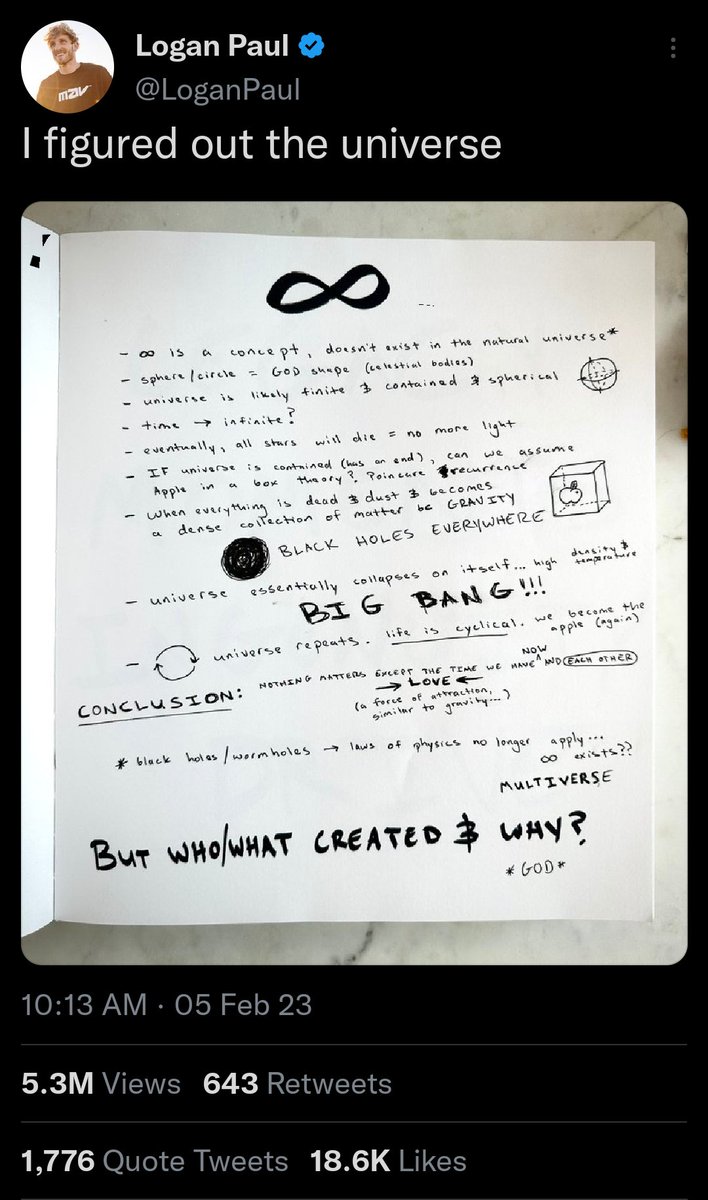 Logan Paul
@LoganPaul
I figured out the universe
∞ ...
- ∞ is a concept, doesn't exist in the natural universe*
- sphere/circle = GOD shape (celestial bodies)
- universe is likely finite & contained & spherical
- time → infinite?
- eventually, all stars will die = no more light
- IF universe is contained (has an end), can we assume
Apple in a box theory? Poincare recurrence
- When everything is dead & dust & becomes
a dense collection of matter bc GRAVITY
BLACK HOLES EVERYWHERE
- universe essentially collapses on itself... high density &
temperature
BIG BANG!!!
- universe repeats. life is cyclical. we become the
apple (again)
CONCLUSION: NOTHING MATTERS EXCEPT THE TIME WE HAVE NOW AND EACH OTHER
→ LOVE ←
(a force of attraction,
similar to gravity...)
* black holes/wormholes → laws of physics no longer apply...
∞ exists??
MULTIVERSE
BUT WHO/WHAT CREATED & WHY?
*GOD*
10:13 AM · 05 Feb 23
5.3M Views 643 Retweets
1,776 Quote Tweets 18.6K Likes